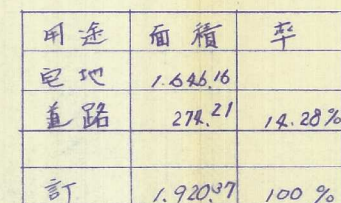 用途 面積 率
宅地 1.646.16
道路 274.21 14.28%
計 1.920.37 100%